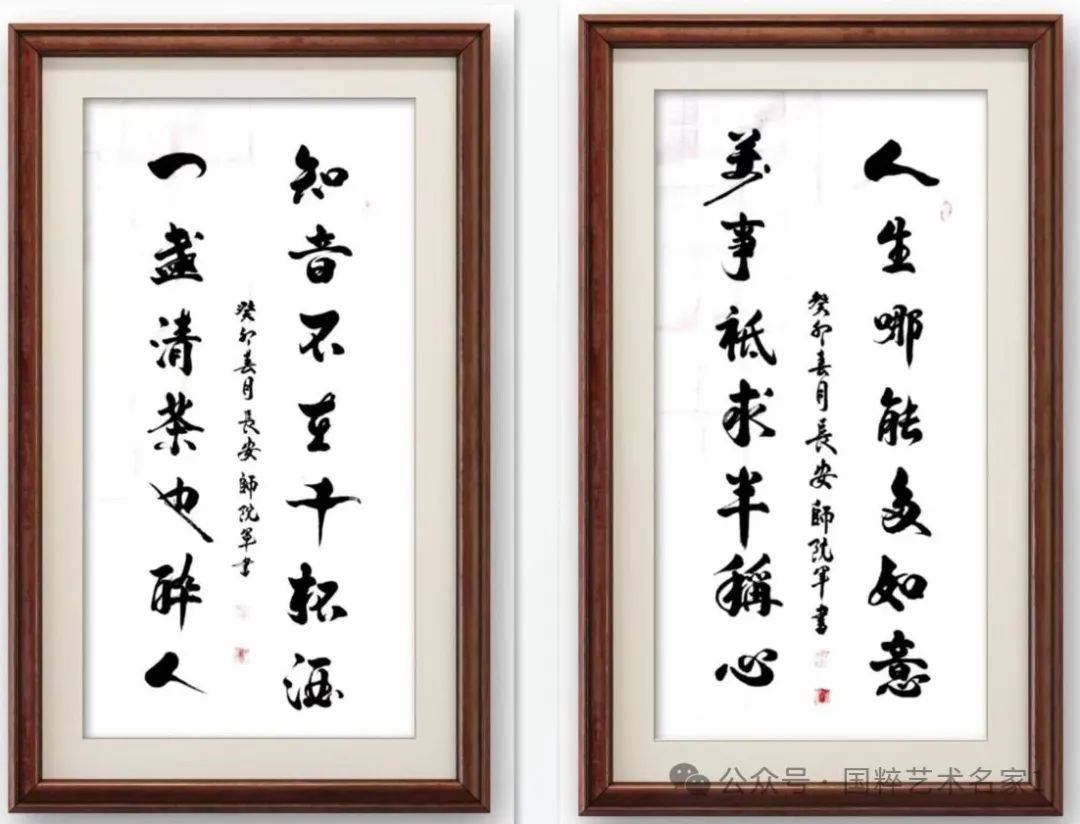 知音不在千杯酒
一盞清茶也醉人
癸卯春月長安師院軍書
人生哪能多如意
萬事祇求半稱心
癸卯春月長安師院軍書
公众号 · 国粹艺术名家1